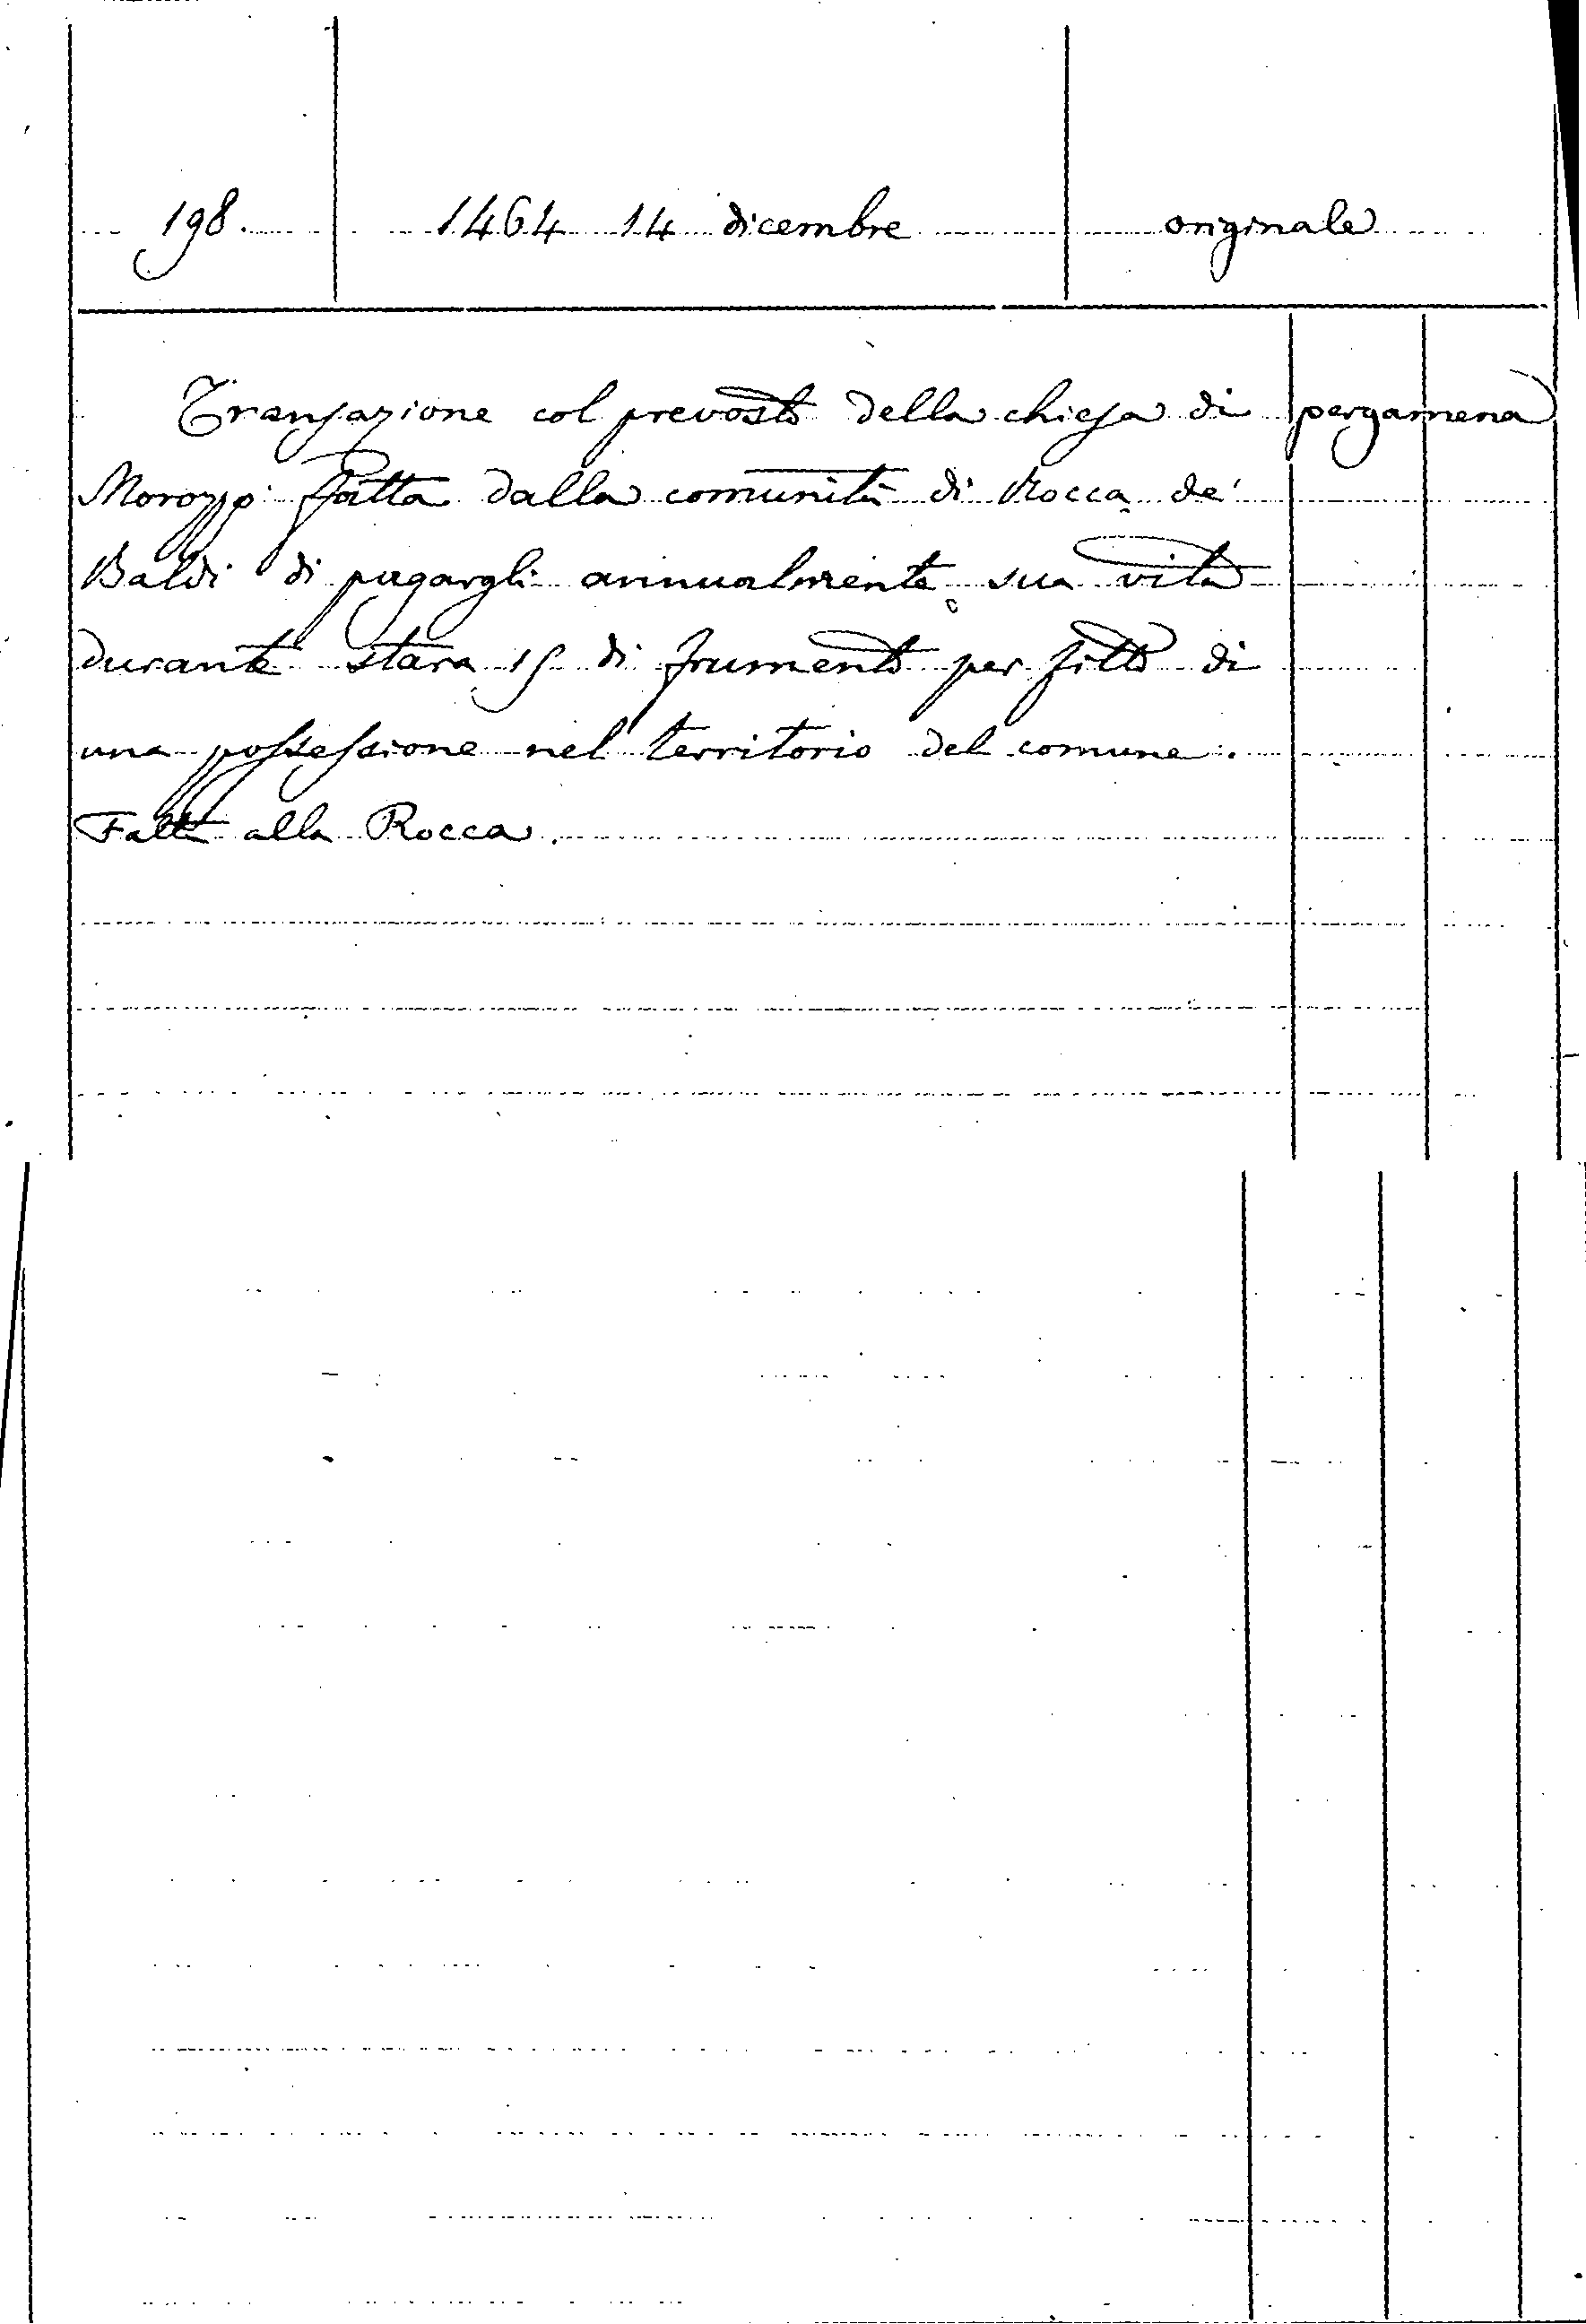 198. 1464 14 dicembre originale
Transazione col prevosto della chiesa di pergamena
Morozzo fatta dalla comunità di Rocca de'
Baldi di pagargli annualmente sua vita
durante stara 15 di frumento per fitto di
una possessione nel territorio del comune.
Fatta alla Rocca.